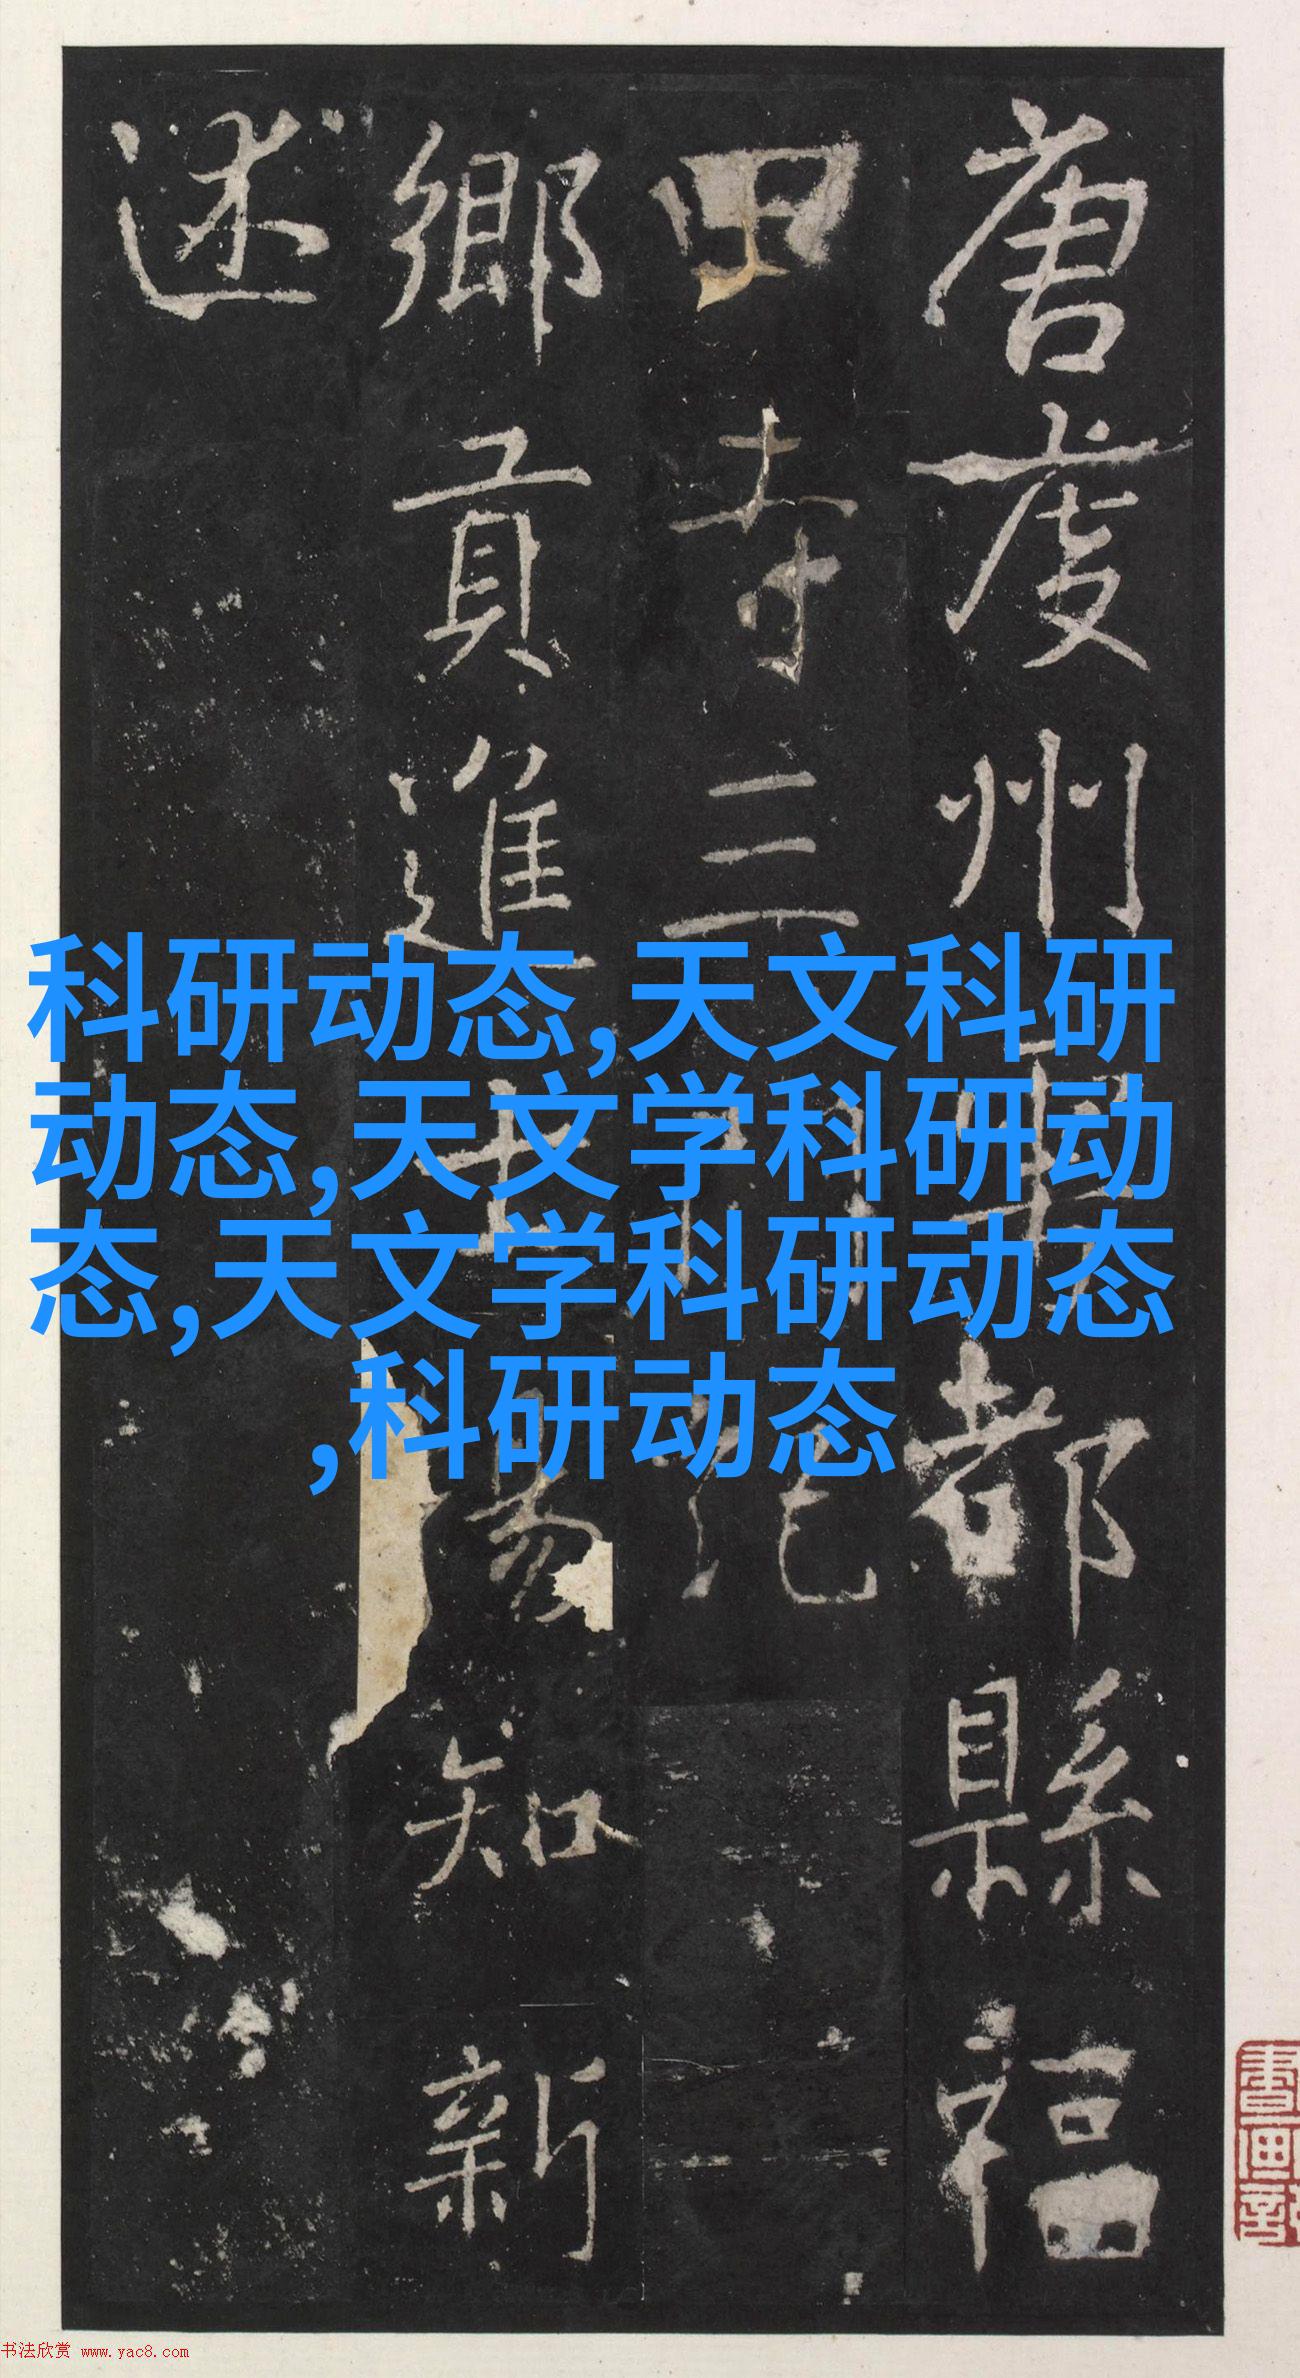 唐虔州雩都縣福
田寺三門記
鄉貢進士楊知新
述
科研动态,天文科研
动态,天文学科研动
态,天文学科研动态
,科研动态
書画
书法欣赏 www.yac8.com